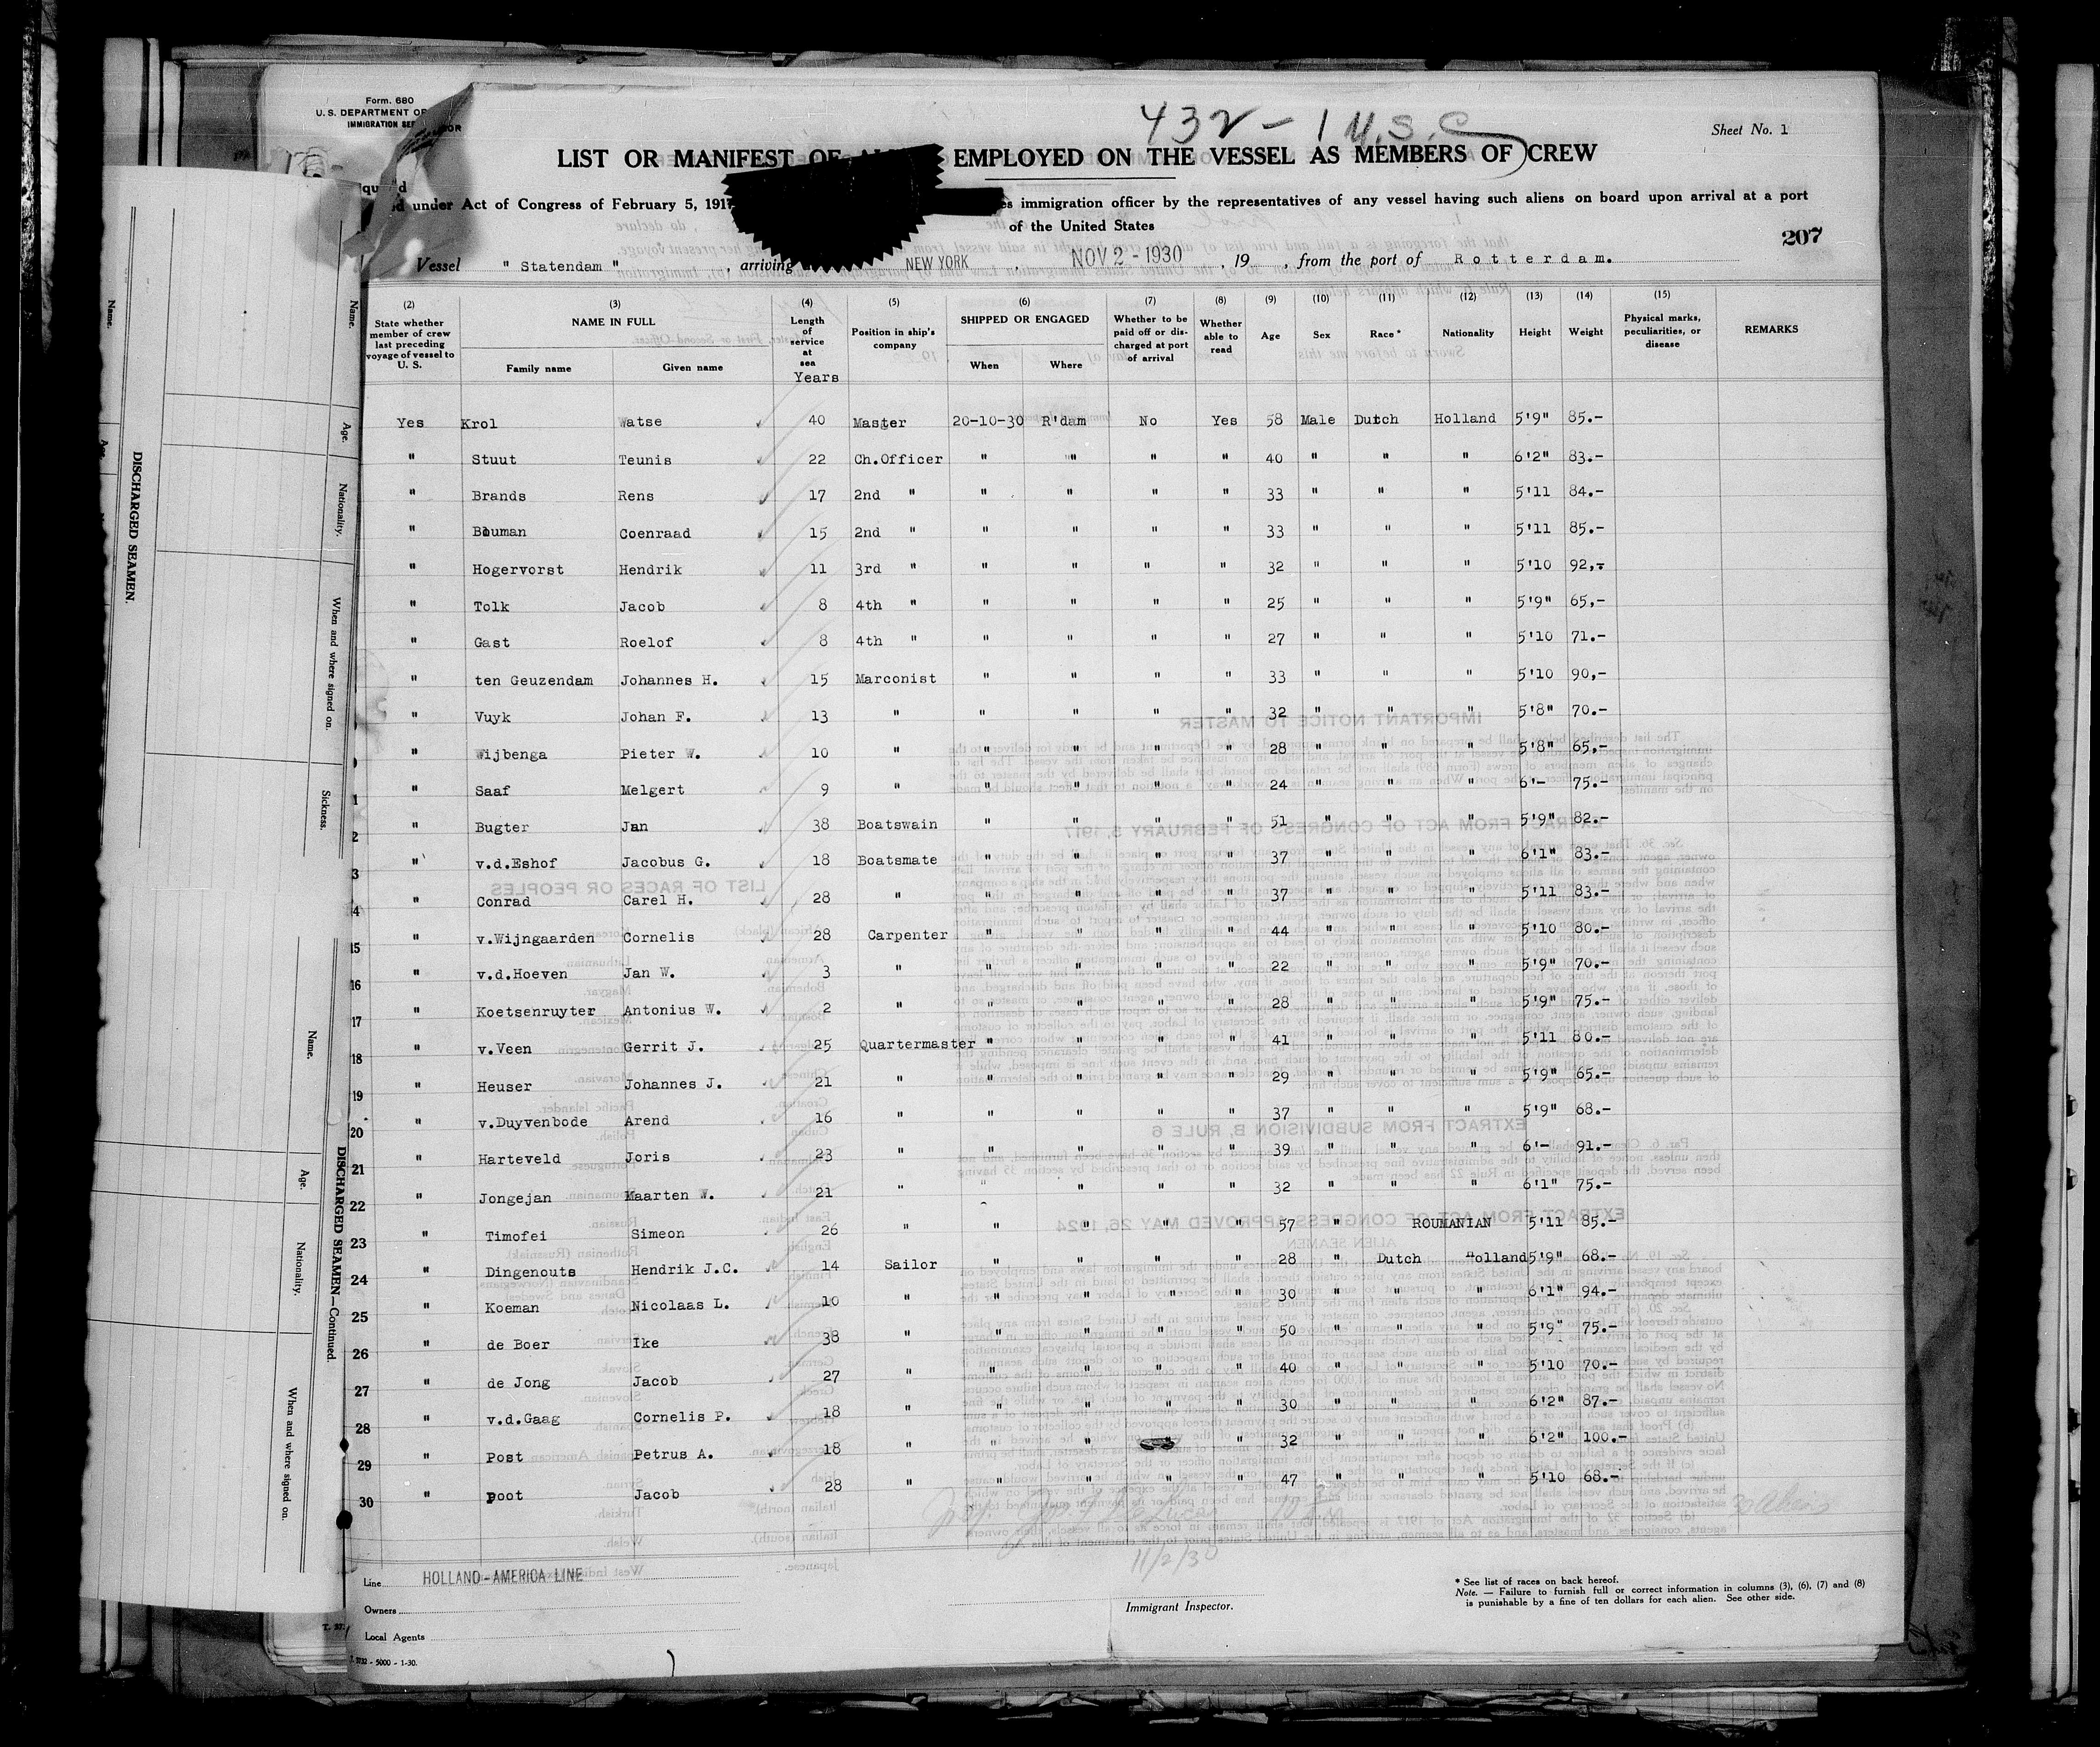 Form. 680
U. S. DEPARTMENT OF
IMMIGRATION
432 - 1 U.S.C
Sheet No. 1
LIST OR MANIFEST OF EMPLOYED ON THE VESSEL AS MEMBERS OF CREW
under Act of Congress of February 5, 1917 immigration officer by the representatives of any vessel having such aliens on board upon arrival at a port
of the United States
207
Vessel " Statendam " , arriving NEW YORK , NOV 2 - 1930 , 19 , from the port of Rotterdam.
(2) (3) (4) (5) (6) (7) (8) (9) (10) (11) (12) (13) (14) (15)
State whether member of crew last preceding voyage of vessel to U. S. NAME IN FULL Family name Given name Length of service at sea Years Position in ship's company SHIPPED OR ENGAGED When Where Whether to be paid off or discharged at port of arrival Whether able to read Age Sex Race * Nationality Height Weight Physical marks, peculiarities, or disease REMARKS
Yes Krol Watse 40 Master 20-10-30 R'dam No Yes 58 Male Dutch Holland 5'9" 85.-
" Stuut Teunis 22 Ch.Officer " " " " 40 " " " 6'2" 83.-
" Brands Rens 17 2nd " " " " " 33 " " " 5'11 84.-
" Bouman Coenraad 15 2nd " " " " " 33 " " " 5'11 85.-
" Hogervorst Hendrik 11 3rd " " " " " 32 " " " 5'10 92,-
" Tolk Jacob 8 4th " " " " " 25 " " " 5'9" 65,-
" Gast Roelof 8 4th " " " " " 27 " " " 5'10 71.-
" ten Geuzendam Johannes H. 15 Marconist " " " " 33 " " " 5'10 90,-
" Vuyk Johan F. 13 " " " " " 32 " " " 5'8" 70.-
" Wijbenga Pieter W. 10 " " " " " 28 " " " 5'8" 65,-
1 " Saaf Melgert 9 " " " " " 24 " " " 6'- 75.-
2 " Bugter Jan 38 Boatswain " " " " 51 " " " 5'9" 82.-
3 " v.d.Eshof Jacobus G. 18 Boatsmate " " " " 37 " " " 6'1" 83.-
4 " Conrad Carel H. 28 " " " " " 37 " " " 5'11 83.-
15 " v.Wijngaarden Cornelis 28 Carpenter " " " " 44 " " " 5'10 80.-
16 " v.d.Hoeven Jan W. 3 " " " " " 22 " " " 5'9" 70.-
17 " Koetsenruyter Antonius W. 2 " " " " " 28 " " " 5'9" 75.-
18 " v.Veen Gerrit J. 25 Quartermaster " " " " 41 " " " 5'11 80.-
19 " Heuser Johannes J. 21 " " " " " 29 " " " 5'9" 65.-
20 " v.Duyvenbode Arend 16 " " " " " 37 " " " 5'9" 68.-
21 " Harteveld Joris 23 " " " " " 39 " " " 6'- 91.-
22 " Jongejan Maarten W. 21 " " " " " 32 " " " 6'1" 75.-
23 " Timofei Simeon 26 " " " " " 57 " ROUMANIAN 5'11 85.-
24 " Dingenouts Hendrik J.C. 14 Sailor " " " " 28 " Dutch Holland 5'9" 68.-
25 " Koeman Nicolaas L. 10 " " " " " 30 " " " 6'1" 94.-
26 " de Boer Ike 38 " " " " " 50 " " " 5'9" 75.-
27 " de Jong Jacob 27 " " " " " 40 " " " 5'10 70.-
28 " v.d.Gaag Cornelis P. 18 " " " " " 30 " " " 6'2" 87.-
29 " Post Petrus A. 18 " " " " 32 " " " 6'2" 100.-
30 " Poot Jacob 28 " " " " " 47 " " " 5'10 68.-
30 Aliens
11/2/30
Line HOLLAND-AMERICA LINE
Owners
Local Agents
Immigrant Inspector.
* See list of races on back hereof.
Note. — Failure to furnish full or correct information in columns (3), (6), (7) and (8)
is punishable by a fine of ten dollars for each alien. See other side.
5732 - 5000 - 1-30.
DISCHARGED SEAMEN.
Name.
Age.
Nationality.
When and where signed on.
Sickness.
DISCHARGED SEAMEN—Continued.
Name.
Age.
Nationality.
When and where signed on.